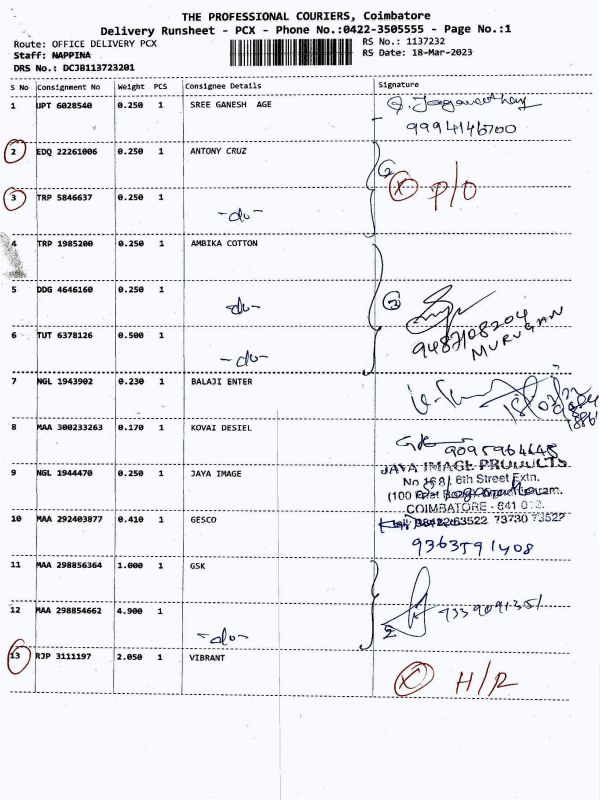 THE PROFESSIONAL COURIERS, Coimbatore
Delivery Runsheet - PCX - Phone No.:0422-3505555 - Page No.:1
Route: OFFICE DELIVERY PCX RS No.: 1137232
Staff: NAPPINA RS Date: 18-Mar-2023
DRS No.: DCJB113723201
S No Consignment No Weight PCS Consignee Details Signature
1 UPT 6028540 0.250 1 SREE GANESH AGE
9994146700
2 EDQ 22261006 0.250 1 ANTONY CRUZ
3 TRP 5846637 0.250 1 P/O
-do-
4 TRP 1985200 0.250 1 AMBIKA COTTON
5 DDG 4646160 0.250 1
-do-
9487108204
MURUGAN
6 TUT 6378126 0.500 1
-do-
7 NGL 1943902 0.230 1 BALAJI ENTER
8 MAA 300233263 0.170 1 KOVAI DESIEL
9095964645
JAYA IMAGE PRODUCTS
9 NGL 1944470 0.250 1 JAYA IMAGE
6th Street Extn.
COIMBATORE - 641 012.
10 MAA 292403877 0.410 1 GESCO
63522 73730 73522
9363591408
11 MAA 298856364 1.000 1 GSK
12 MAA 298854662 4.900 1
-do-
13 RJP 3111197 2.050 1 VIBRANT
H/R